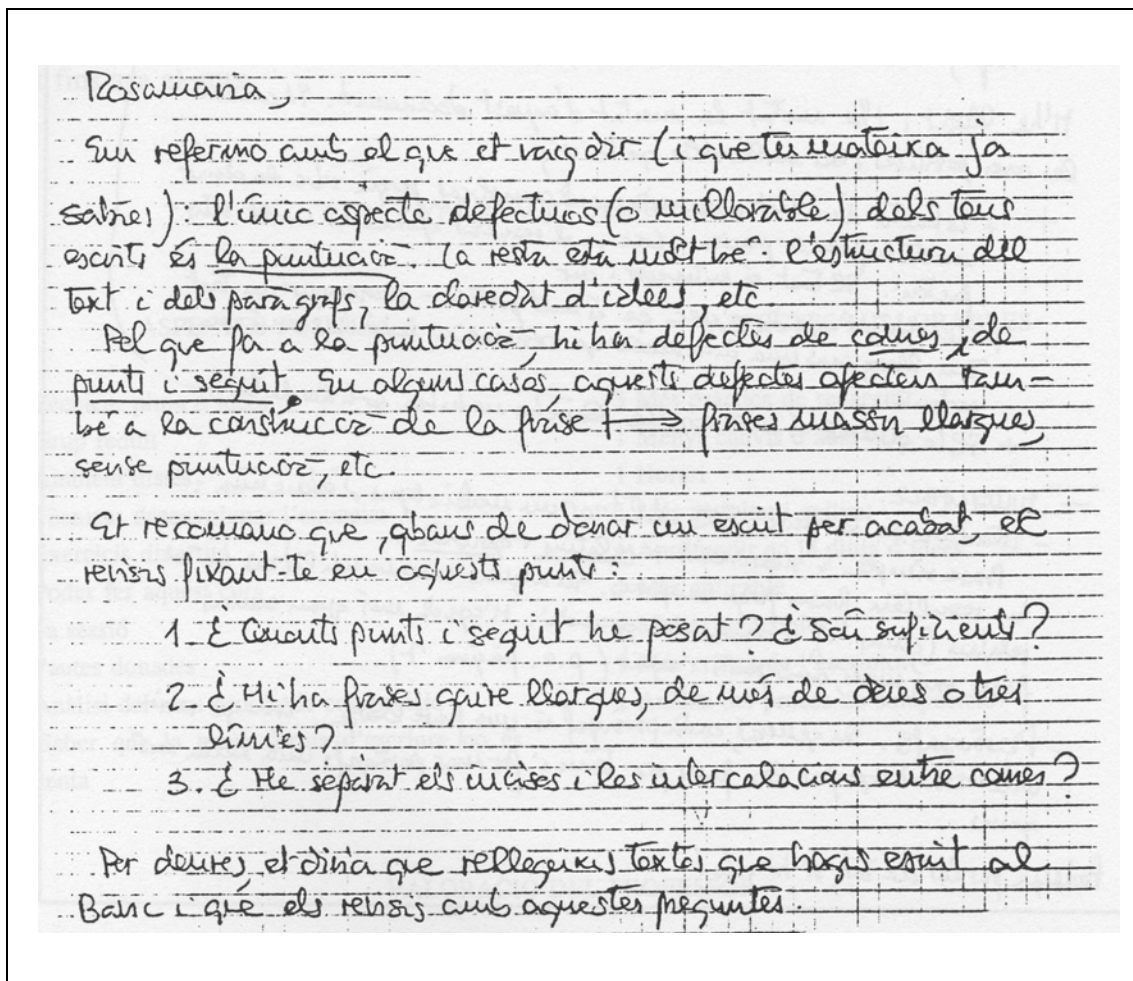 Rosamaria,
Em refermo amb el que et vaig dir (i que tu mateixa ja
sabies): l'únic aspecte defectuós (o millorable) dels teus
escrits és la puntuació. La resta està molt bé: l'estructura del
text i dels paràgrafs, la claredat d'idees, etc.
Pel que fa a la puntuació, hi ha defectes de comes, i de
punts i seguit. En alguns casos aquests defectes afecten tam-
bé a la construcció de la frase → frases massa llargues,
sense puntuació etc.
Et recomano que, abans de donar un escrit per acabat, el
revisis fixant-te en aquests punts:
1. ¿Quants punts i seguit he posat? ¿Són suficients?
2. ¿Hi ha frases gaire llargues, de més de dues o tres
línies?
3. ¿He separat els incisos i les intercalacions entre comes?
Per deures, et diria que rellegeixis textes que hagis escrit al
Banc i que els revisis amb aquestes preguntes.